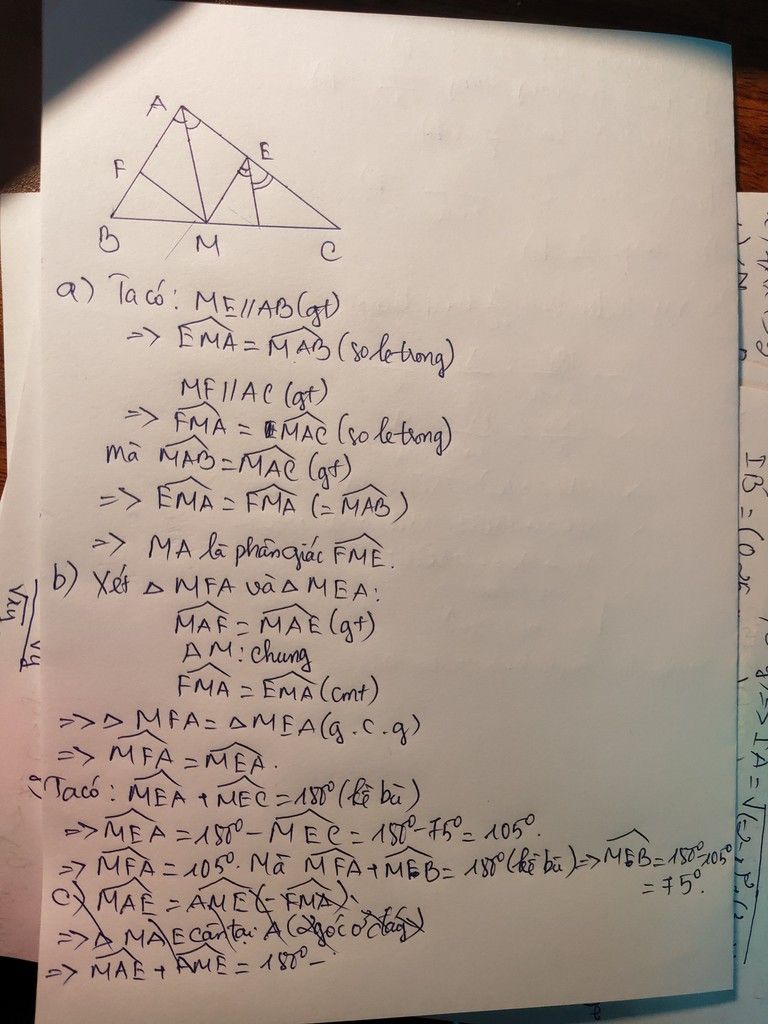 A
F
E
B
M
C
a) Ta có: ME//AB (gt)
=> EMA = MAB (so le trong)
MF//AC (gt)
=> FMA = MAC (so le trong)
mà MAB = MAC (gt)
=> EMA = FMA (= MAB)
=> MA là phân giác FME.
b) Xét △ MFA và △ MEA:
MAF = MAE (gt)
AM: chung
FMA = EMA (cmt)
=> △ MFA = △ MEA (g.c.g)
=> MFA = MEA.
Ta có: MEA + MEC = 180° (kề bù)
=> MEA = 180° - MEC = 180° - 75° = 105°.
=> MFA = 105°. Mà MFA + MFB = 180° (kề bù) => MFB = 180° - 105°
= 75°.
c) MAE = AME (= FMA).
=> △ MAE cân tại A (2 góc ở đáy)
=> MAE + AME = 180° -
√xy
√y
IB = (
=> IA = √